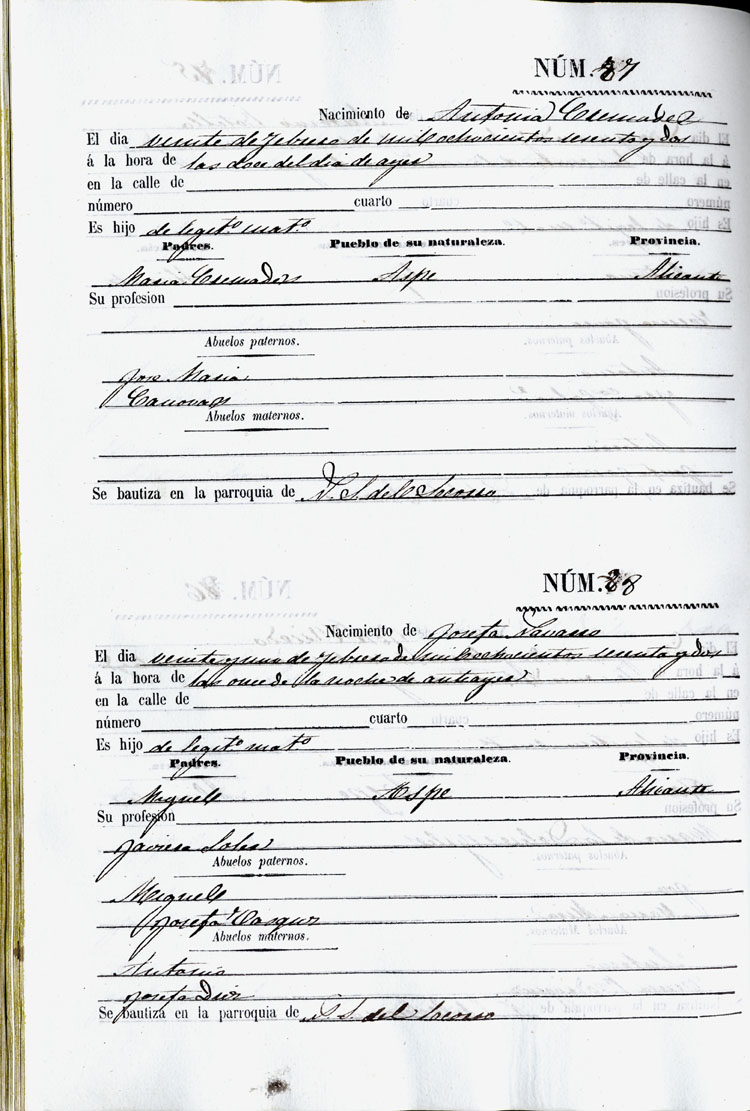 NÚM. 87
Nacimiento de Antonia Cremades
El dia veinte de febrero de mil ochocientos sesenta y dos
á la hora de las doce del dia de ayer
en la calle de
número cuarto
Es hijo de legit.º mat.º
Padres. Pueblo de su naturaleza. Provincia.
Maria Cremades Aspe Alicante
Su profesion
Abuelos paternos.
Jose Maria
Canovas
Abuelos maternos.
Se bautiza en la parroquia de N. S. del Socorro
NÚM. 88
Nacimiento de Josefa Navarro
El dia veinte y uno de febrero de mil ochocientos sesenta y dos
á la hora de las once de la noche de anteayer
en la calle de
número cuarto
Es hijo de legit.º mat.º
Padres. Pueblo de su naturaleza. Provincia.
Miguel Aspe Alicante
Su profesion
Javiera Soler
Abuelos paternos.
Miguel
Josefa Vazquez
Abuelos maternos.
Antonio
Josefa
Se bautiza en la parroquia de N. S. del Socorro